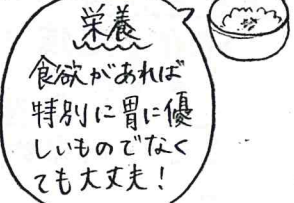 栄養
食欲があれば
特別に胃に優
しいものでなく
ても大丈夫!